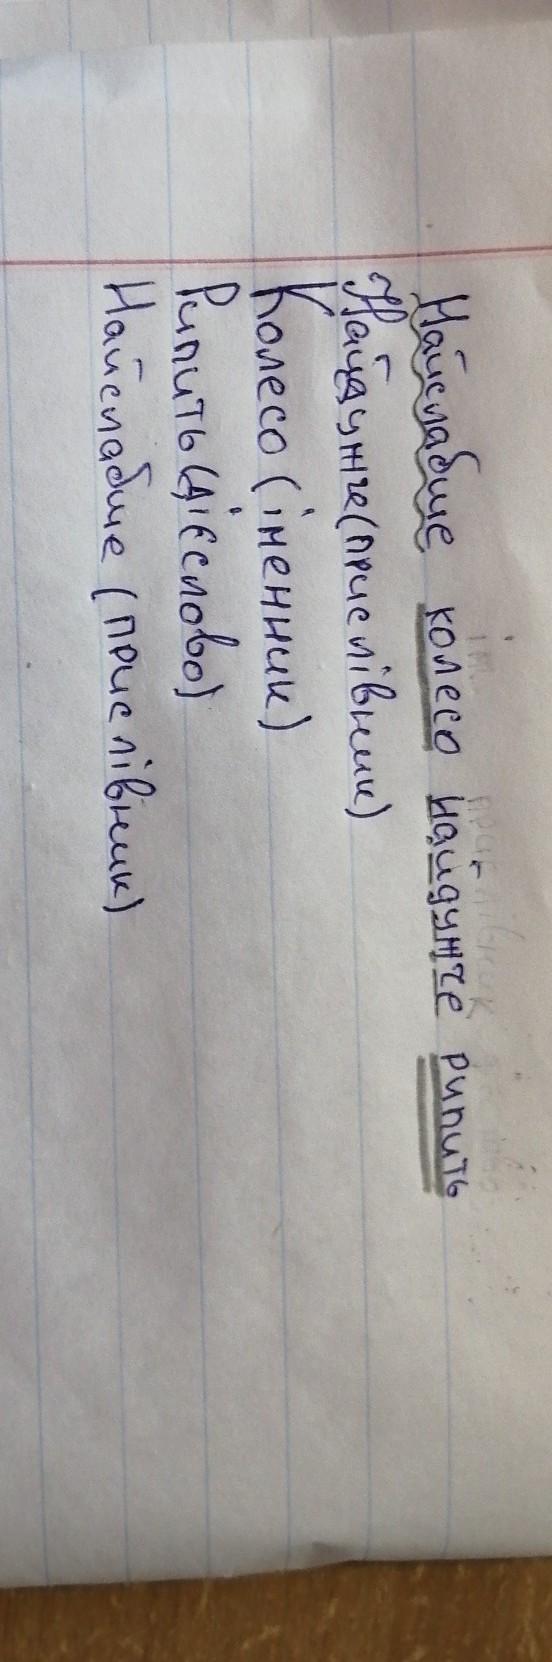 Найслабше колесо найдужче рипить
Найдужче (прислівник)
Колесо (іменник)
Рипить (дієслово)
Найслабше (прислівник)